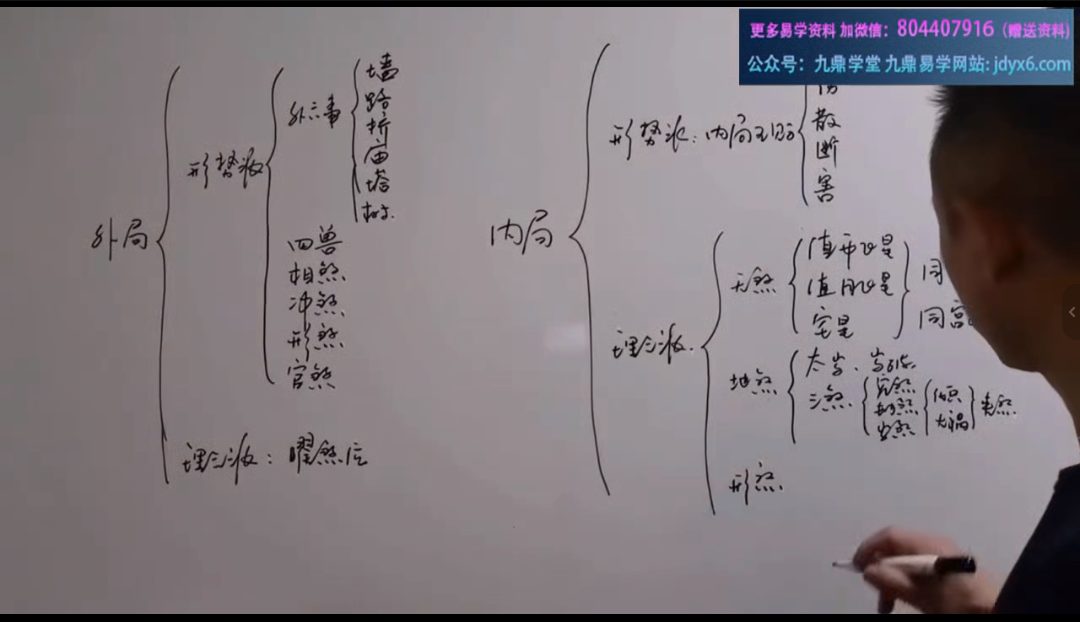 更多易学资料 加微信：804407916（赠送资料）
公众号：九鼎学堂 九鼎易学网站: jdyx6.com
外局
形势派
外六事
墙
路
桥
庙
塔
树
四兽
相煞
冲煞
形煞
官煞
理气派：曜煞位
内局
形势派：内局五
散
断
害
理气派
天煞
值年飞星
值月飞星
宅星
同
同宫
地煞
太岁、岁破
三煞
灾煞
劫煞
岁煞
大祸
形煞